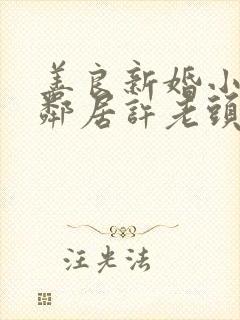 善良新婚小
鄰居許老頭
汪光法